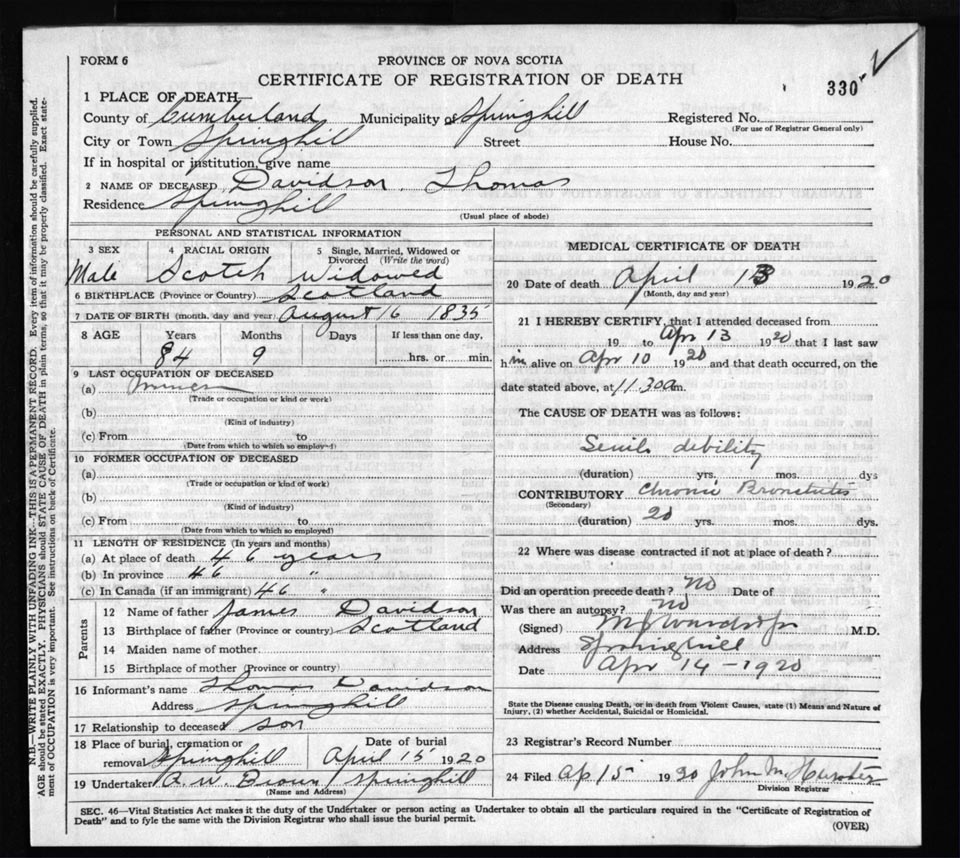 FORM 6
PROVINCE OF NOVA SCOTIA
CERTIFICATE OF REGISTRATION OF DEATH
330
1 PLACE OF DEATH—
County of Cumberland Municipality of Springhill Registered No.
(For use of Registrar General only)
City or Town Springhill Street House No.
If in hospital or institution, give name
2 NAME OF DECEASED Davidson, Thomas
Residence Springhill
(Usual place of abode)
PERSONAL AND STATISTICAL INFORMATION
3 SEX 4 RACIAL ORIGIN 5 Single, Married, Widowed or
Divorced (Write the word)
Male Scotch Widowed
6 BIRTHPLACE (Province or Country) Scotland
7 DATE OF BIRTH (month, day and year) August 16 1835
8 AGE Years Months Days If less than one day,
84 9 hrs. or min.
9 LAST OCCUPATION OF DECEASED
(a)
(Trade or occupation or kind or work)
(b)
(Kind of industry)
(c) From to
(Date from which to which so employed)
10 FORMER OCCUPATION OF DECEASED
(a)
(Trade or occupation or kind of work)
(b)
(Kind of industry)
(c) From to
(Date from which to which so employed)
11 LENGTH OF RESIDENCE (In years and months)
(a) At place of death 46 years
(b) In province 46 "
(c) In Canada (if an immigrant) 46 "
Parents
12 Name of father James Davidson
13 Birthplace of father (Province or country) Scotland
14 Maiden name of mother
15 Birthplace of mother (Province or country)
16 Informant's name Thomas Davidson
Address Springhill
17 Relationship to deceased son
18 Place of burial, cremation or Date of burial
removal Springhill April 15 1920
19 Undertaker A. W. Brown Springhill
(Name and Address)
MEDICAL CERTIFICATE OF DEATH
20 Date of death April 13 1920
(Month, day and year)
21 I HEREBY CERTIFY, that I attended deceased from
19 to Apr 13 1920 that I last saw
h im alive on Apr 10 1920 and that death occurred, on the
date stated above, at 11.30 a m.
The CAUSE OF DEATH was as follows:
Senile debility
(duration) yrs. mos. dys
CONTRIBUTORY Chronic Bronchitis
(Secondary)
(duration) 20 yrs. mos. dys.
22 Where was disease contracted if not at place of death?
Did an operation precede death? no Date of
Was there an autopsy? no
(Signed) M.D.
Address Springhill
Date Apr 14 - 1920
State the Disease causing Death, or in death from Violent Causes, state (1) Means and Nature of
Injury, (2) whether Accidental, Suicidal or Homicidal.
23 Registrar's Record Number
24 Filed Ap 15 1920 John M. Hunter
Division Registrar
SEC. 46—Vital Statistics Act makes it the duty of the Undertaker or person acting as Undertaker to obtain all the particulars required in the "Certificate of Registration of
Death" and to fyle the same with the Division Registrar who shall issue the burial permit.
(OVER)
N.B.—WRITE PLAINLY WITH UNFADING INK—THIS IS A PERMANENT RECORD. Every item of information should be carefully supplied.
AGE should be stated EXACTLY. PHYSICIANS should STATE CAUSE OF DEATH in plain terms, so that it may be properly classified. Exact state-
ment of OCCUPATION is very important. See instructions on back of Certificate.